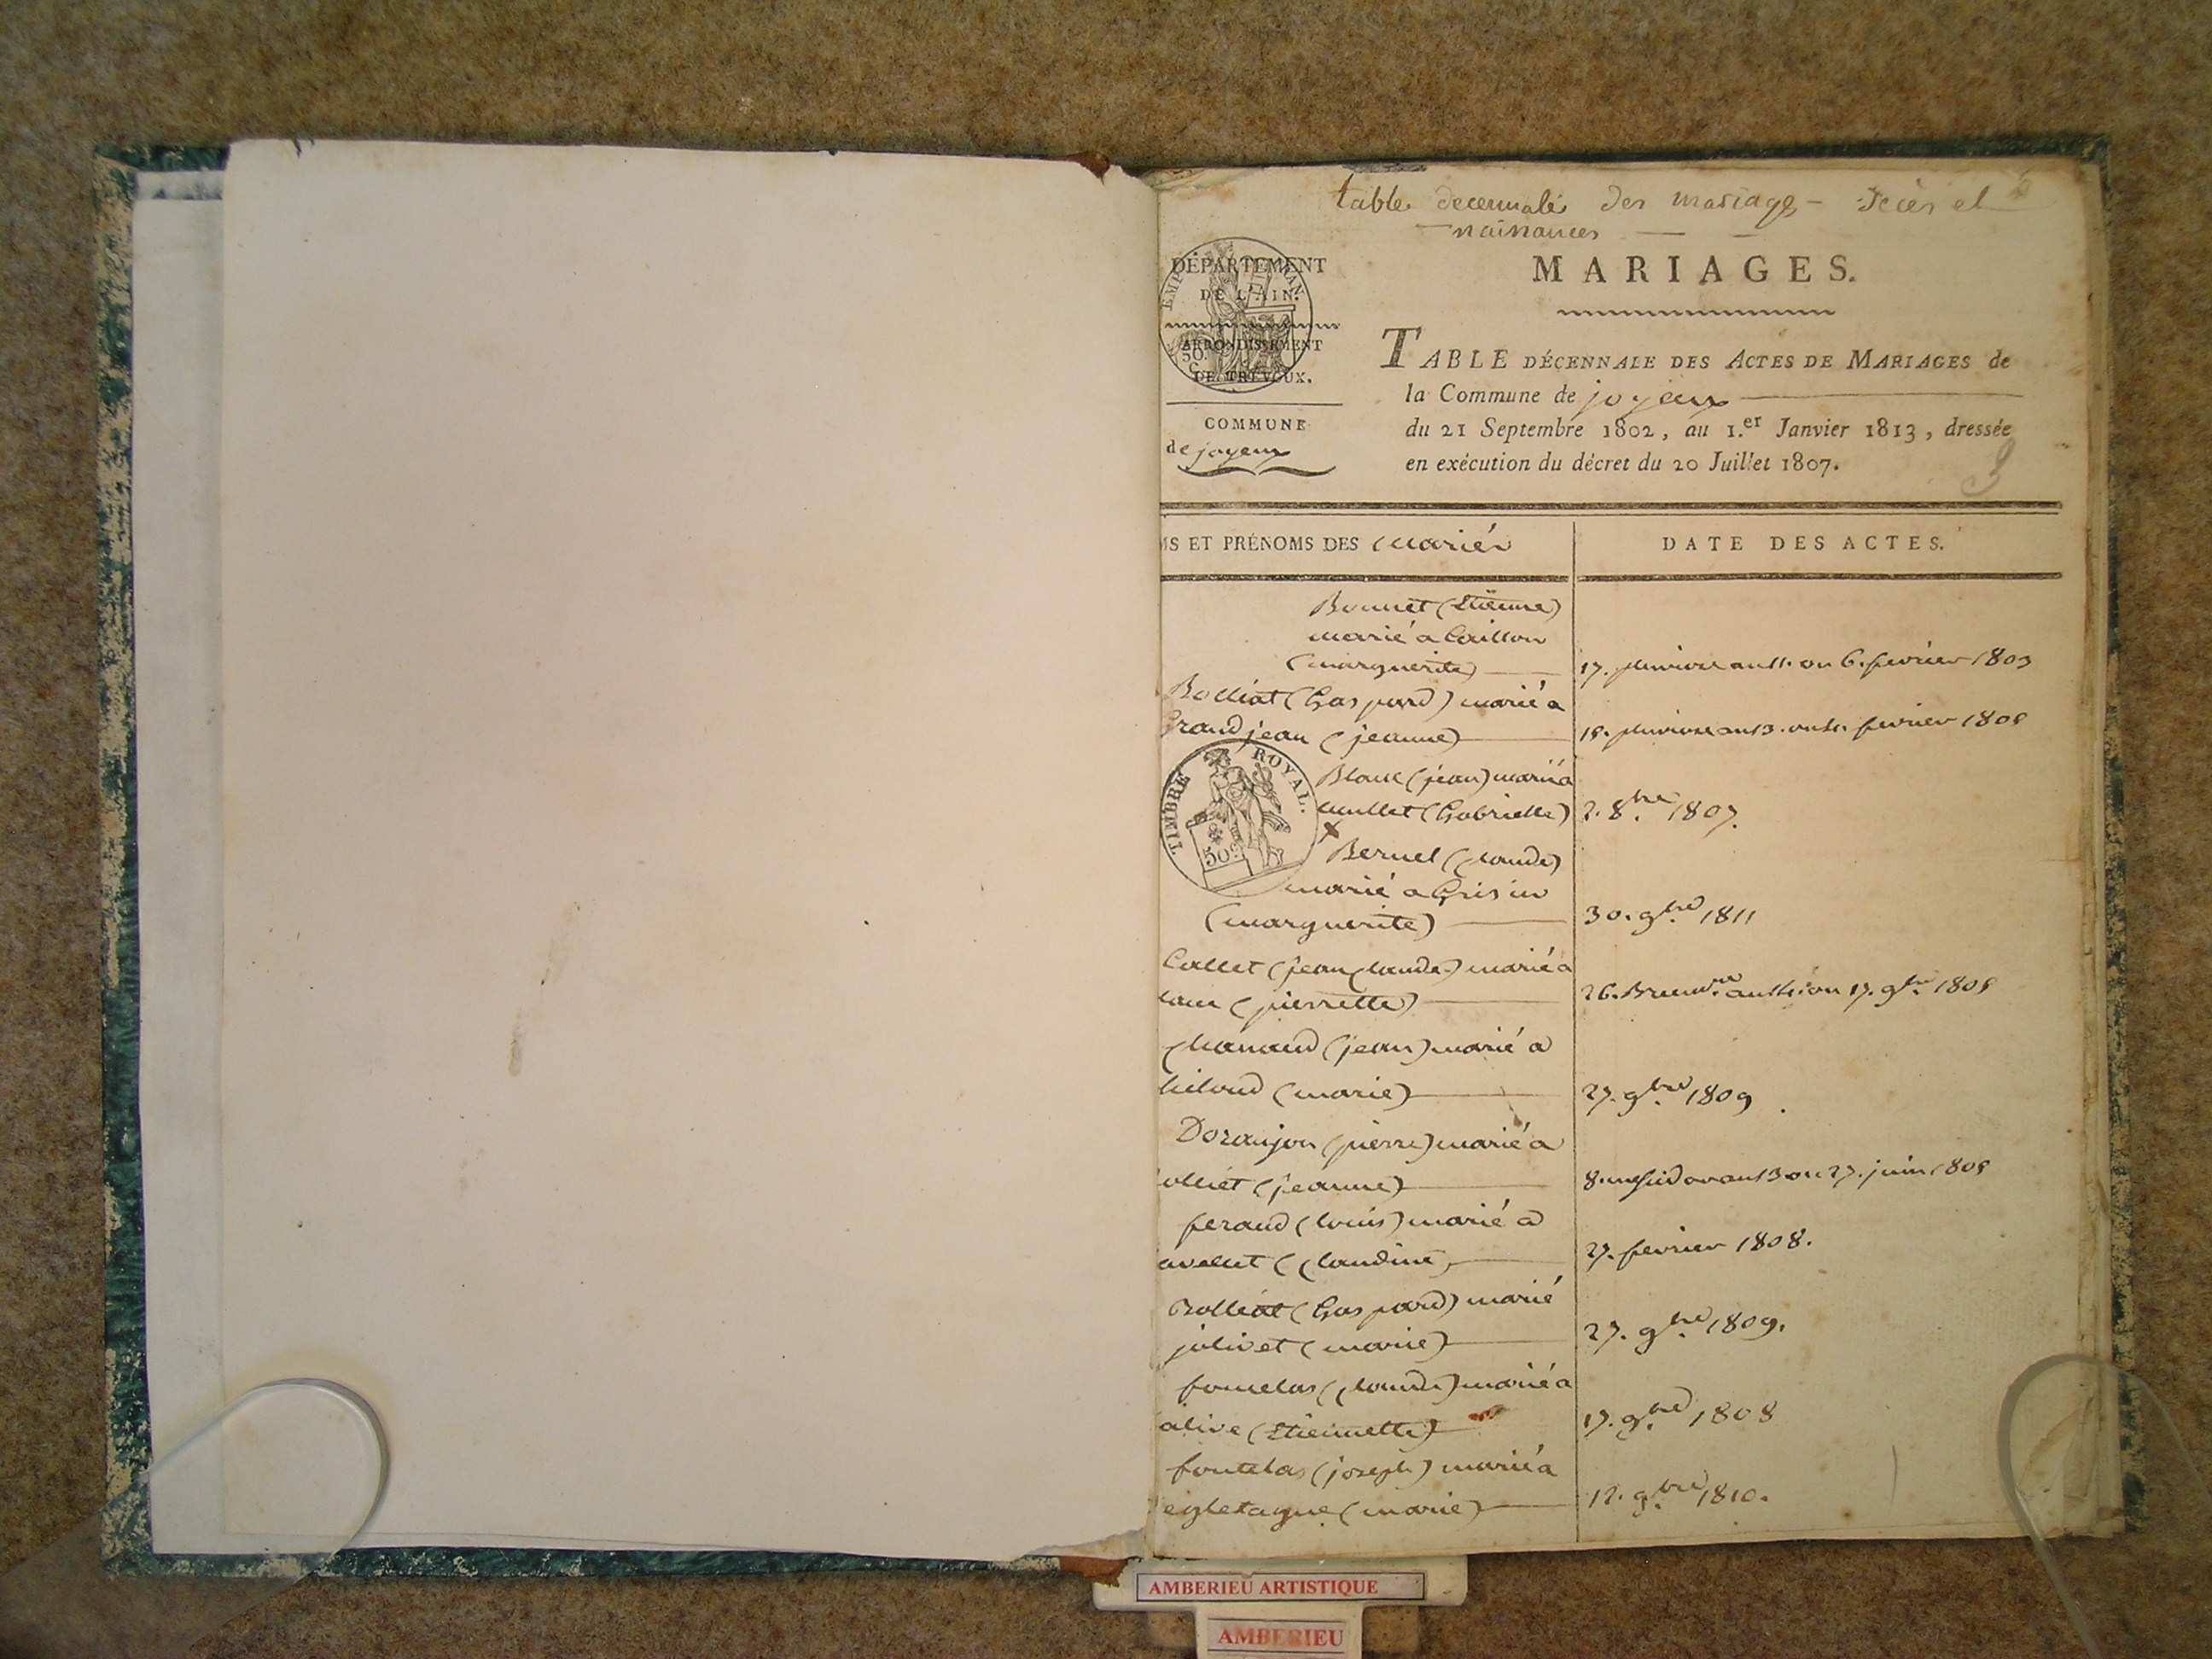 table decennale des mariages - décès et
naissances
DÉPARTEMENT
DE L'AIN.
ARRONDISSEMENT
DE TRÉVOUX.
COMMUNE
de joyeux
MARIAGES.
TABLE DÉCENNALE DES ACTES DE MARIAGES de
la Commune de joyeux
du 21 Septembre 1802, au 1.er Janvier 1813, dressée
en exécution du décret du 20 Juillet 1807.
MS ET PRÉNOMS DES mariés
DATE DES ACTES.
Bonnet (Etienne)
marié a Caillon
(marguerite)
17. pluviose an 11. ou 6. fevrier 1803
Bolliat (Gaspard) marié a
Grandjean (jeanne)
15. pluviose an 13. ou 4. fevrier 1805
TIMBRE ROYAL.
50c
Blanc (jean) marié a
(Gabrielle)
2. 8bre 1807.
Bernel (Claude)
marié a Grisin
(marguerite)
30. 9bre 1811
Collet (jean Claude) marié a
(pierrette)
26. Brumre an 14. ou 17. 9bre 1805
Chanaud (jean) marié a
(marie)
27. 9bre 1809
Doranjon (pierre) marié a
olliet (jeanne)
8. messidor an 13 ou 27. juin 1805
feraud (louis) marié a
(Claudine)
27. fevrier 1808.
Bolliat (Gaspard) marié
jolivet (marie)
27. 9bre 1809.
(Claude) marié a
alive (Etiennette)
17. 9bre 1808
fontelas (joseph) marié a
(marie)
12. 9bre 1810.
AMBERIEU ARTISTIQUE
AMBERIEU